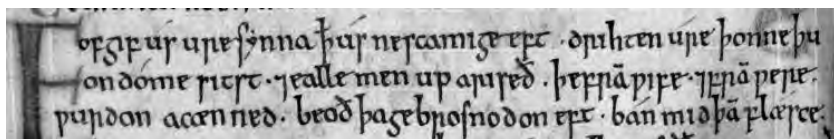 Forgif us ure synna þ us ne scamige eft · drihten ure þonne þu
on dome sitst · ⁊ ealle men up arised · þe frā wife · ⁊ frā were ·
wurdon acænned · beoð þa gebrosnodon eft · bán mid þā flæsce ·